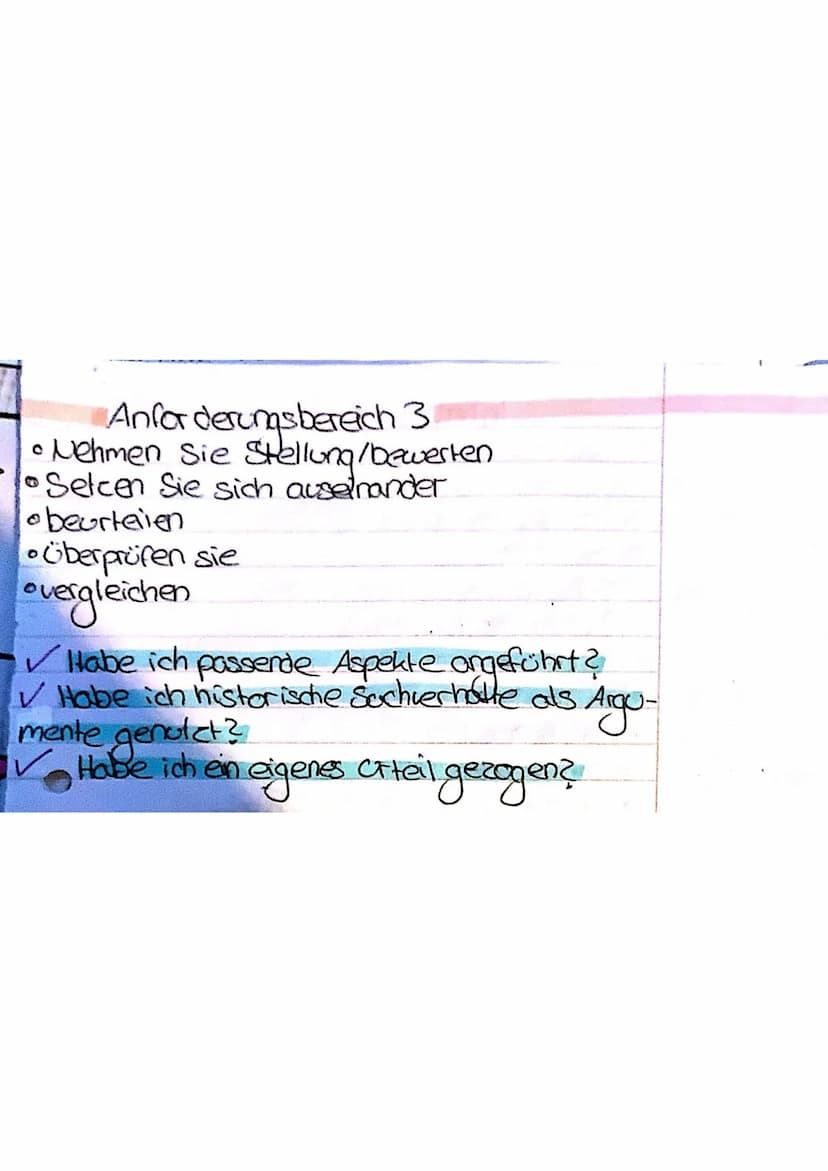 Anforderungsbereich 3
• Nehmen Sie Stellung/bewerten
• Setzen Sie sich auseinander
• beurteilen
• Überprüfen sie
• vergleichen
✓ Habe ich passende Aspekte angeführt?
✓ Habe ich historische Sachverhalte als Argu-
mente genutzt?
✓ Habe ich ein eigenes Urteil gezogen?